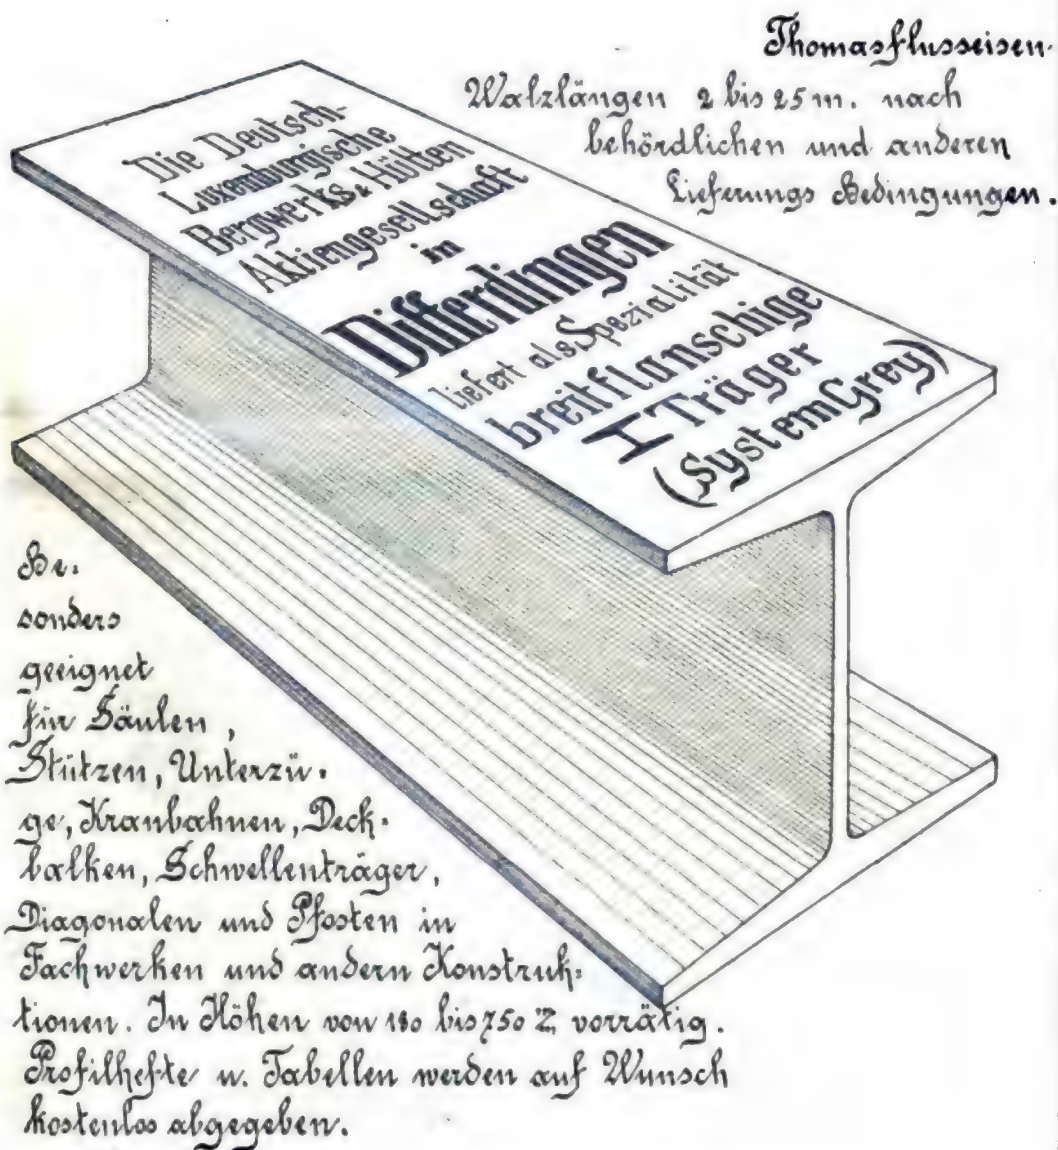 Thomasflusseisen.
Walzlängen 2 bis 25 m. nach
behördlichen und anderen
Lieferungs Bedingungen.
Die Deutsch-
Luxemburgische
Bergwerks & Hütten
Aktiengesellschaft
in
Differdingen
liefert als Spezialität
breitflanschige
I Träger
(System Grey)
Be-
sonders
geeignet
für Säulen,
Stützen, Unterzü-
ge, Kranbahnen, Deck-
balken, Schwellenträger,
Diagonalen und Pfosten in
Fachwerken und andern Konstruk-
tionen. In Höhen von 180 bis 750 vorrätig.
Profilhefte u. Tabellen werden auf Wunsch
kostenlos abgegeben.